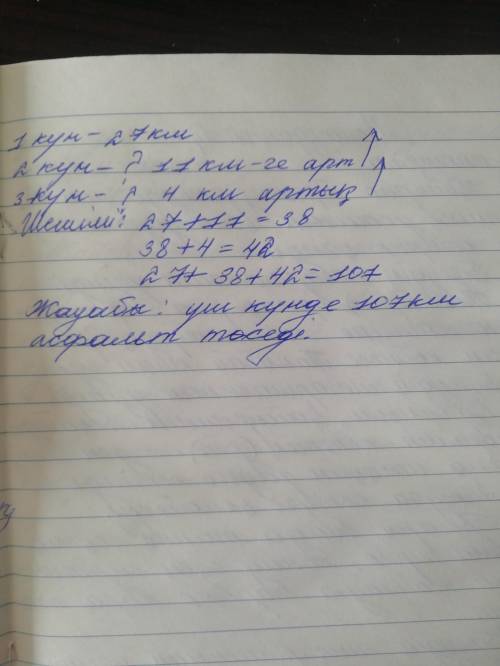 1 күн - 27 км
2 күн - ? 11 км-ге арт ↑
3 күн - ? 4 км артық ↑
Шешімі: 27+11=38
38+4=42
27+38+42=107
Жауабы: үш күнде 107 км
асфальт төседі.